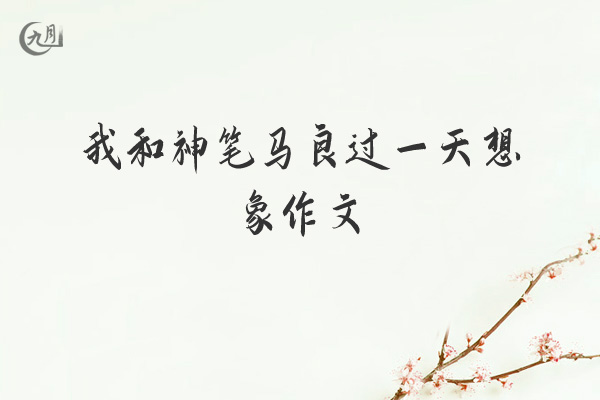 九月
我和神笔马良过一天想
象作文